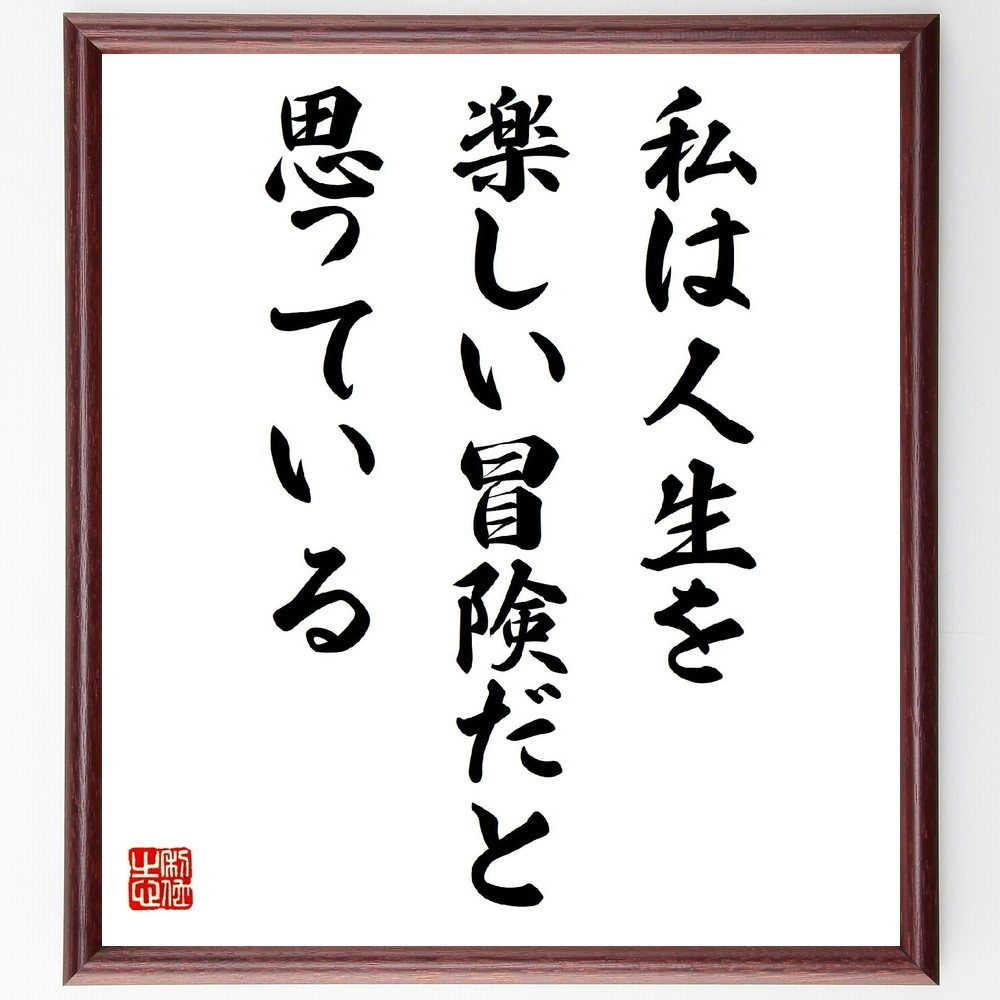 私は人生を
楽しい冒険だと
思っている